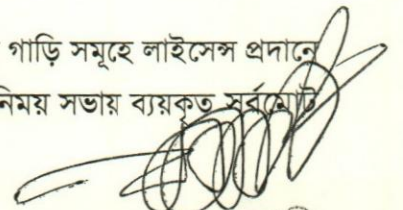 গাড়ি সমূহে লাইসেন্স প্রদানে
নিময় সভায় ব্যয়কৃত সর্বমোট